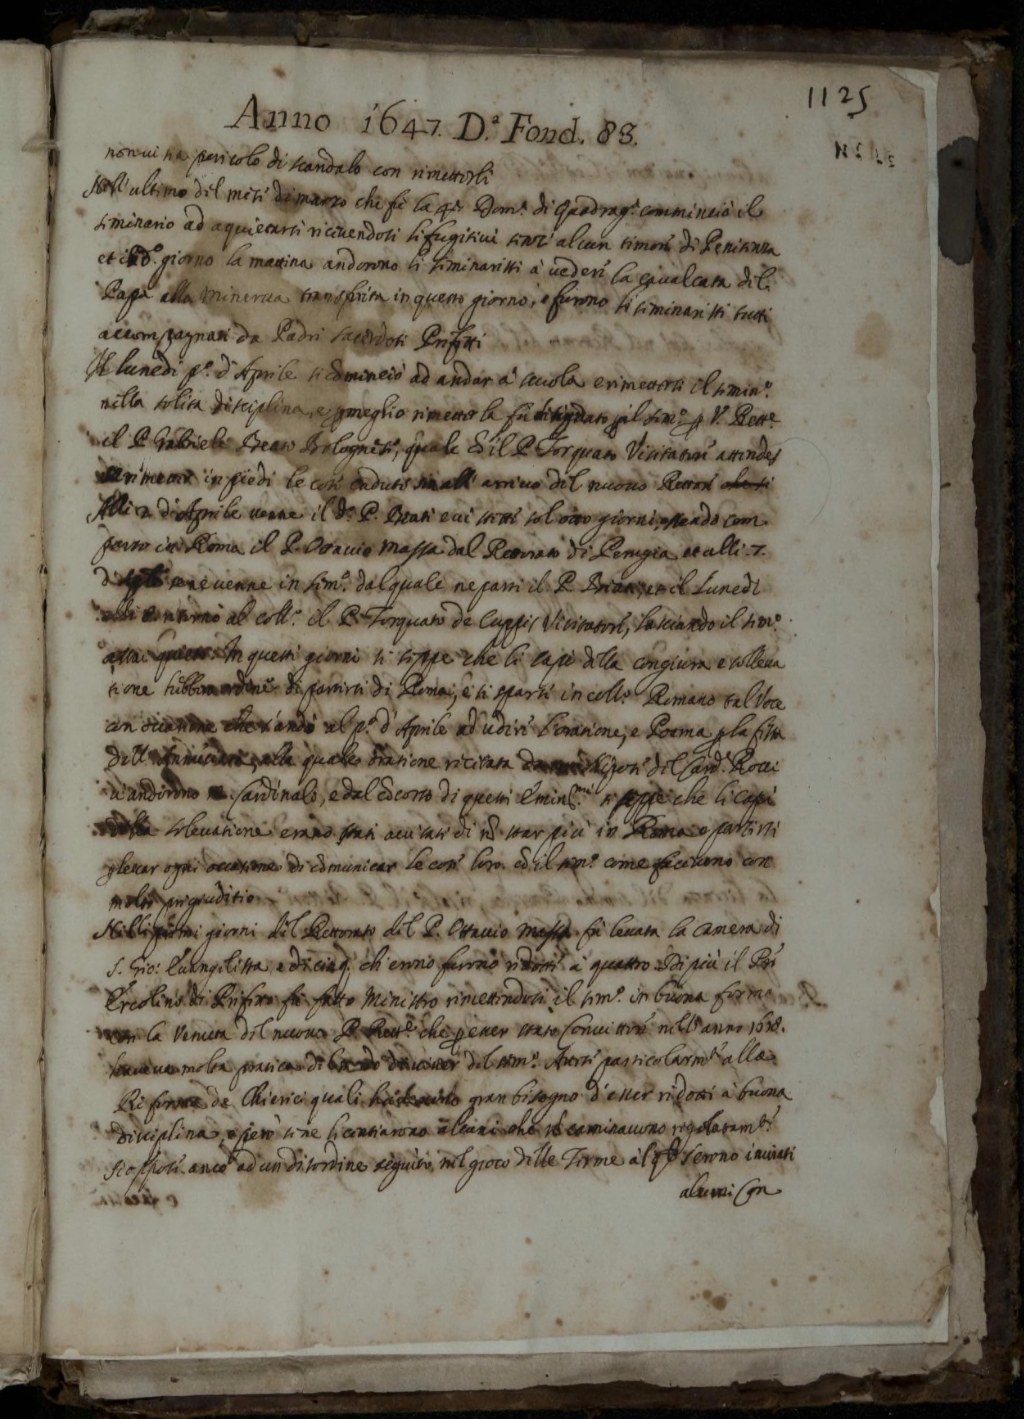 1125
Anno 1647 D.ª Fond. 83.
non vi sia pericolo di scandalo con rimetterli
Nell'ultimo del mese di marzo che fù la 4ª Dom.ª di Quadrag.ª comminciò il
seminario ad aquietarsi ricevendosi li fugitivi senza alcun timore di Penitenza
et giorno la mattina andorono li seminaristi à veder la cavalcata del
Papa alla Minerva transferita in questo giorno, e furono li seminaristi tutti
accompagnati da Padri sacerdoti Prefetti
Il lunedi p.º d'Aprile si cominciò ad andar à scuola e rimettersi il semin.º
nella solita disciplina, e meglio rimetterla fù il sem.º V. Rett.e
il P. Gabriele Beati Bolognese, quale ed il P. Torquato Visitatore attendes
in piedi le cose sin all'arrivo del nuovo Rettore
Alli 2 d'Aprile venne il d.º P. Beati e vi stette sol otto giorni, essendo com
parso in Roma il P. Ottavio Massa dal Rettorato di Perugia et alli 7.
d se ne venne in sem.º dal quale ne partì il P. Beati, et il Lunedi
tornò al coll.º il P. Torquato de Cuppis Visitatore, lasciando il sem.º
assai quieto. In questi giorni si seppe che li capi della congiura e solleva
tione hebbono ordine di partirsi di Roma, e si sparse in coll.º Romano tal voce
con occasione che s'andò al p.º d'Aprile ad udire l'oratione, e Poema p la festa
dell'Annuciata, alla quale oratione recitata da del Card. Rocci
v'andorono Cardinali, e dal discorso di questi Emin.mi si seppe che li capi
della solevatione erano stati avisati di nō star più in Roma e partirsi
p levar ogni occasione di comunicar le cose loro cō il sem.º come facevano con
molto pregiuditio
Nelli primi giorni del Rettorato del P. Ottavio Massa fù levata la camera di
S. Gio: Evangelista, e di cinq. ch'erano furono ridotte à quattro. Di più il
Ercolino di Prefetto fù fatto Ministro rimettendosi il sem.º in buona forma
con la venuta del nuovo P. Rett.e che p esser stato Convittore nell'anno 1618.
haveva molta pratica del sem.º Attese particolarm.te alla
Riforma de Chierici quali gran bisogno d'esser ridotti à buona
disciplina, e però se ne licentiarono alcuni che nō caminavono regolatam.te
Si oppose anco ad un disordine seguito nel gioco delle Terme al q.le s'erono inviati
alunni Con